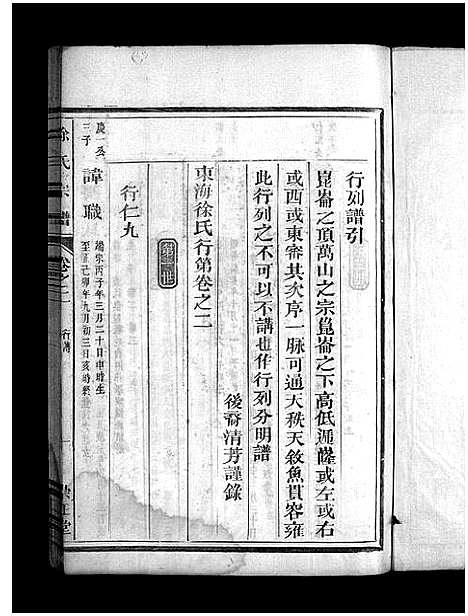 行列譜引
崑崙之頂萬山之宗崑崙之下高低遞隆或左或右
或西或東審其次序一脉可通天秩天敘魚貫容雍
此行列之不可以不講也作行列分明譜
後裔清芳謹錄
東海徐氏行第卷之二
第一世
行仁九
慶一公
三子
諱職
端宗丙子年三月二十日申時生
至正己卯年九月初三日亥時終
徐氏宗譜
卷之二
行譜
一